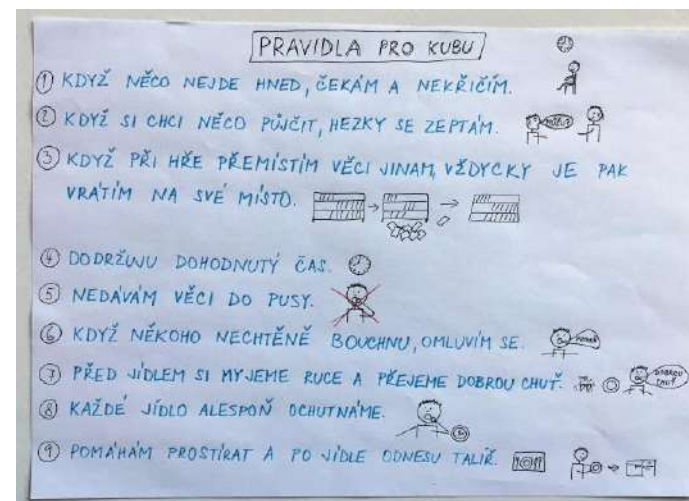 PRAVIDLA PRO KUBU
① KDYŽ NĚCO NEJDE HNED, ČEKÁM A NEKŘIČÍM.
② KDYŽ SI CHCI NĚCO PŮJČIT, HEZKY SE ZEPTÁM.
③ KDYŽ PŘI HŘE PŘEMÍSTÍM VĚCI JINAM, VŽDYCKY JE PAK
VRÁTÍM NA SVÉ MÍSTO.
④ DODRŽUJU DOHODNUTÝ ČAS.
⑤ NEDÁVÁM VĚCI DO PUSY.
⑥ KDYŽ NĚKOHO NECHTĚNĚ BOUCHNU, OMLUVÍM SE.
⑦ PŘED JÍDLEM SI MYJEME RUCE A PŘEJEME DOBROU CHUŤ. DOBROU CHUŤ
⑧ KAŽDÉ JÍDLO ALESPOŇ OCHUTNÁME.
⑨ POMÁHÁM PROSTÍRAT A PO JÍDLE ODNESU TALÍŘ.